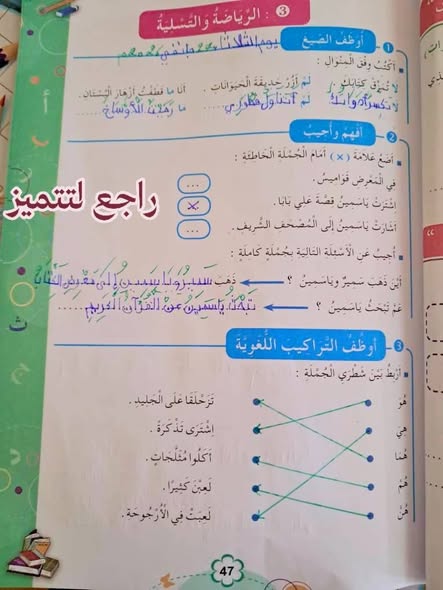 3 : الرِّيَاضَةُ وَالتَّسْلِيَةُ
1 أُوَظِّفُ الصِّيَغَ
أَكْتُبُ وِفْقَ الْمِنْوَالِ :
لَا تُمَزِّقْ كِتَابَكَ. لَمْ أَزُرْ حَدِيقَةَ الْحَيَوَانَاتِ. أَنَا مَا قَطَفْتُ أَزْهَارَ الْبُسْتَانِ.
لا تكسر أدواتك لم أتناول فطوري ما رميت الأوساخ
2 أَفْهَمُ وَأُجِيبُ
أَضَعُ عَلَامَةَ (×) أَمَامَ الْجُمْلَةِ الْخَاطِئَةِ :
فِي الْمَعْرِضِ قَوَامِيسُ. ...
اِشْتَرَتْ يَاسَمِينُ قِصَّةَ عَلِي بَابَا. ×
أَشَارَتْ يَاسَمِينُ إِلَى الْمُصْحَفِ الشَّرِيفِ. ...
راجع لتتميز
أُجِيبُ عَنِ الْأَسْئِلَةِ التَّالِيَةِ بِجُمْلَةٍ كَامِلَةٍ :
أَيْنَ ذَهَبَ سَمِيرٌ وَيَاسَمِينُ ؟ ذَهَبَ سمير وياسمين إلى معرض الكتاب
عَمَّ تَبْحَثُ يَاسَمِينُ ؟ تبحث ياسمين عن القرآن الكريم
3 أُوَظِّفُ التَّرَاكِيبَ اللُّغَوِيَّةَ
أَرْبِطُ بَيْنَ شَطْرَيِ الْجُمْلَةِ :
هُوَ تَزَحْلَقَا عَلَى الْجَلِيدِ.
هِيَ اِشْتَرَى تَذْكِرَةً.
هُمَا أَكَلُوا مُثَلَّجَاتٍ.
هُمْ لَعِبْنَ كَثِيرًا.
هُنَّ لَعِبَتْ فِي الْأُرْجُوحَةِ.
47